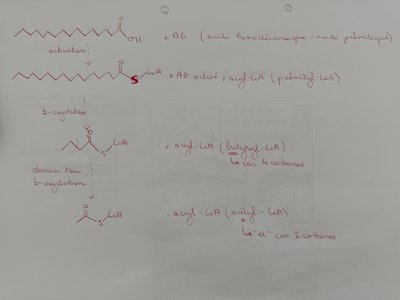 O
OH = AG (acide hexadécanoïque = acide palmitique)
activation
O
S CoA = AG activé = acyl-CoA (palmityl-CoA)
b-oxydation
O
S CoA = acyl-CoA (butyryl-CoA)
↳ car 4 carbones
dernier tour
b-oxydation
O
S CoA = acyl-CoA (acétyl-CoA)
↳ "et" car 2 carbones